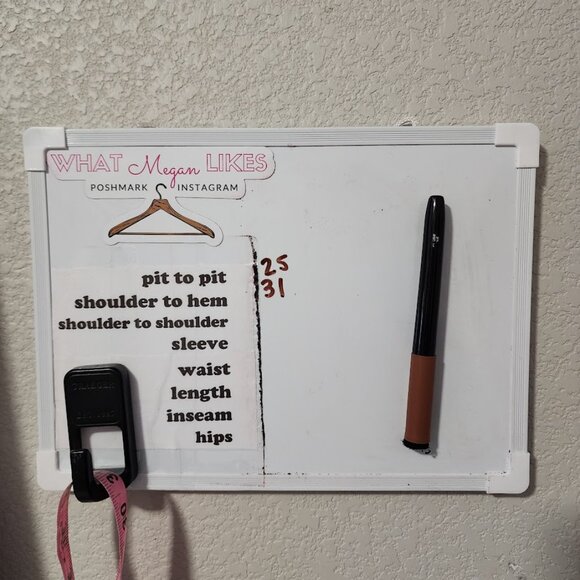 WHAT Megan LIKES
POSHMARK INSTAGRAM
pit to pit 25
shoulder to hem 31
shoulder to shoulder
sleeve
waist
length
inseam
hips
TRAEGER